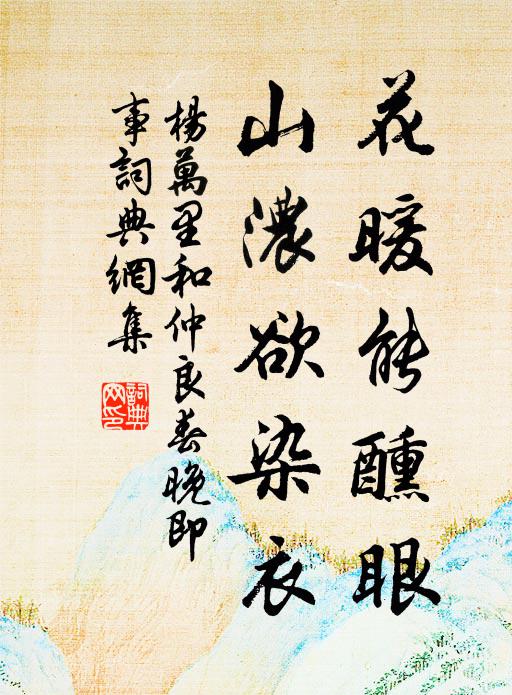 花暖能醺眼
山濃欲染衣
楊萬里和仲良春晚即
事詞典網集
詞典網印